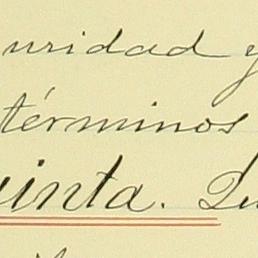 uridad y
términos
uinta. Qu